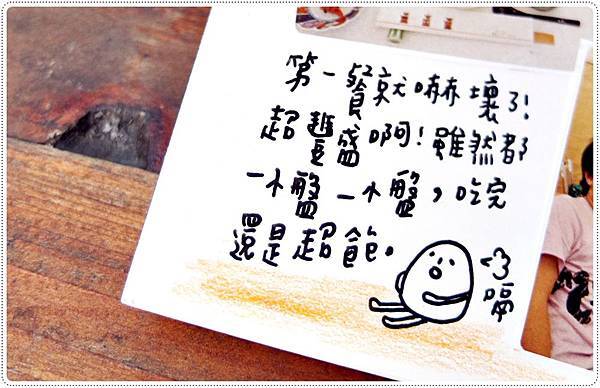 第一餐就嚇壞了!
超豐盛啊!雖然都
一小盤一小盤,吃完
還是超飽。
嗝